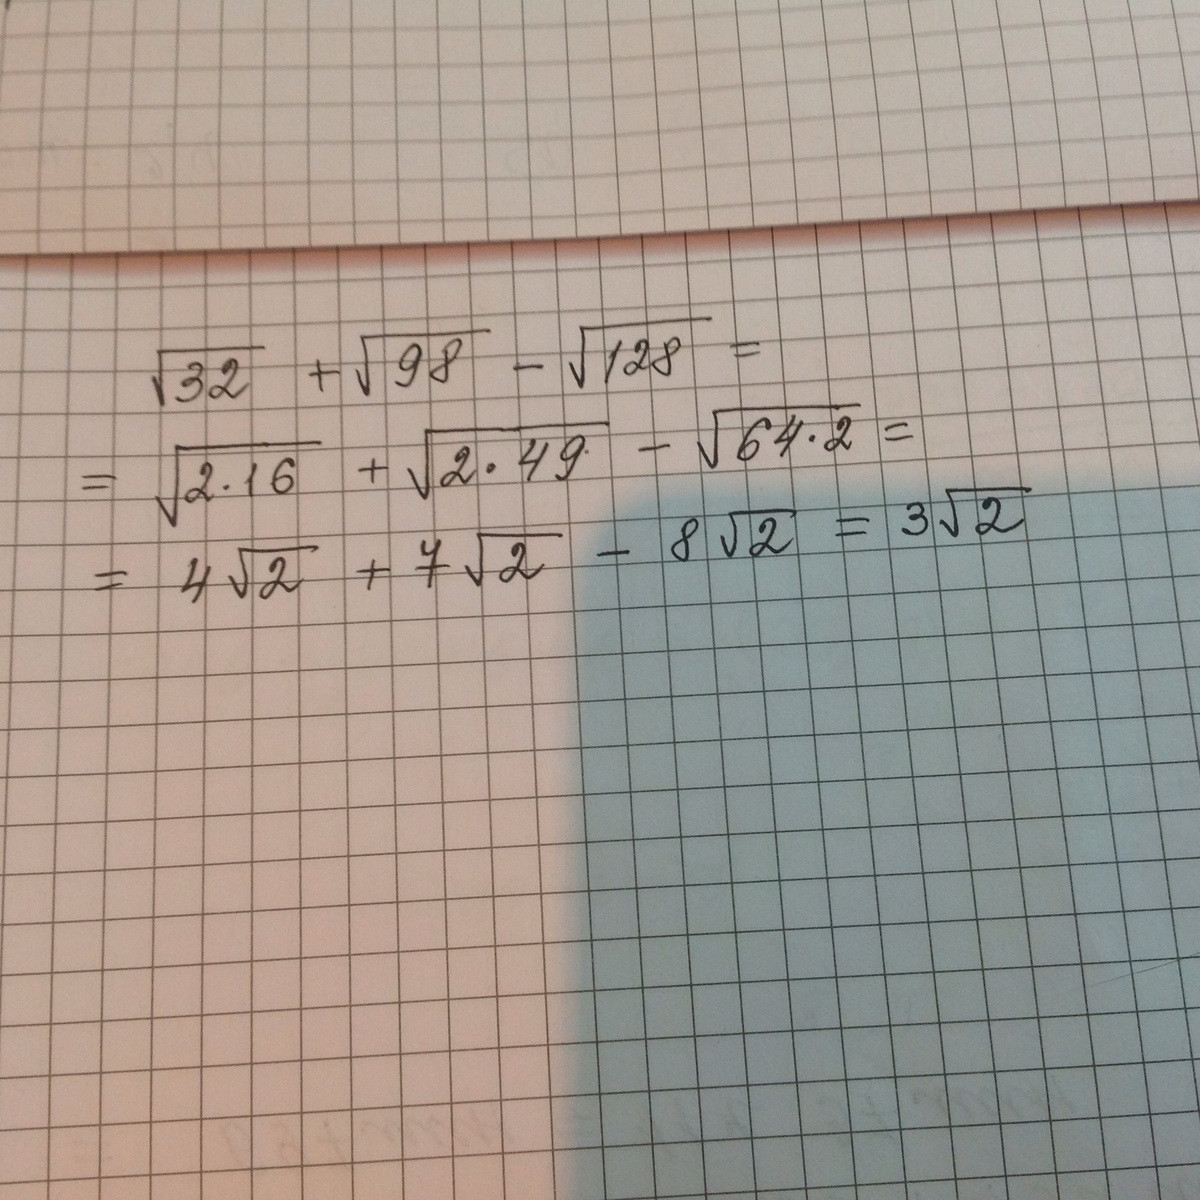 √32 + √98 − √128 =
= √2·16 + √2·49 − √64·2 =
= 4√2 + 7√2 − 8√2 = 3√2